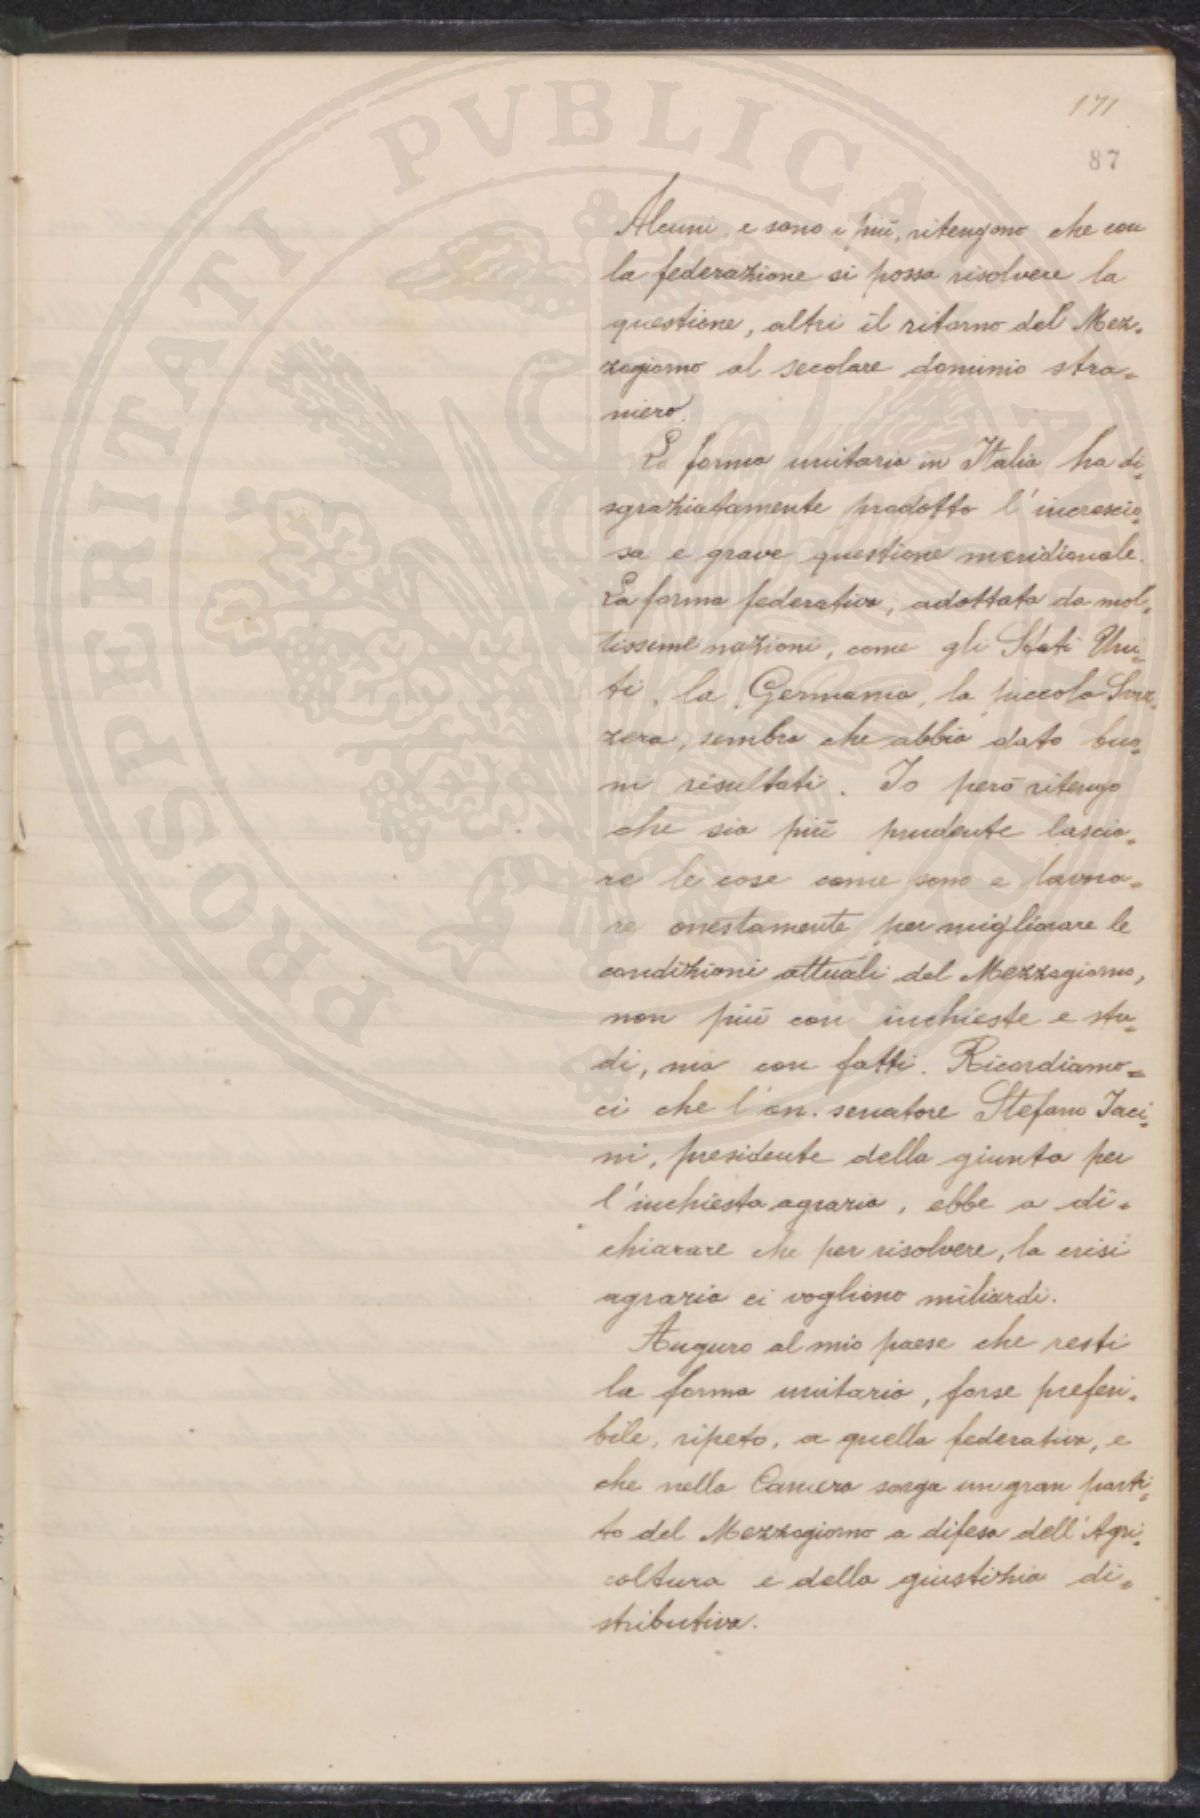 171
87
Alcuni, e sono i più, ritengono che con
la federazione si possa risolvere la
questione, altri il ritorno del Mez=
zogiorno al secolare dominio stra=
niero.
La forma unitaria in Italia ha di=
sgraziatamente prodotto l'increscio=
sa e grave questione meridionale.
La forma federativa, adottata da mol=
tissime nazioni, come gli Stati Uni=
ti, la Germania, la piccola Sviz=
zera, sembra che abbia dato buo=
ni risultati. Io però ritengo
che sia più prudente lascia=
re le cose come sono e lavora=
re onestamente per migliorare le
condizioni attuali del Mezzogiorno,
non più con inchieste e stu=
di, ma con fatti. Ricordiamo=
ci che l'on. senatore Stefano Jaci=
ni, presidente della giunta per
l'inchiesta agraria, ebbe a di=
chiarare che per risolvere, la crisi
agraria ci vogliono miliardi.
Auguro al mio paese che resti
la forma unitaria, forse preferi=
bile, ripeto, a quella federativa, e
che nella Camera sorga un gran parti=
to del Mezzogiorno a difesa dell'Agri=
coltura e della giustizia di=
stributiva.
PROSPERITATI PVBLICAE